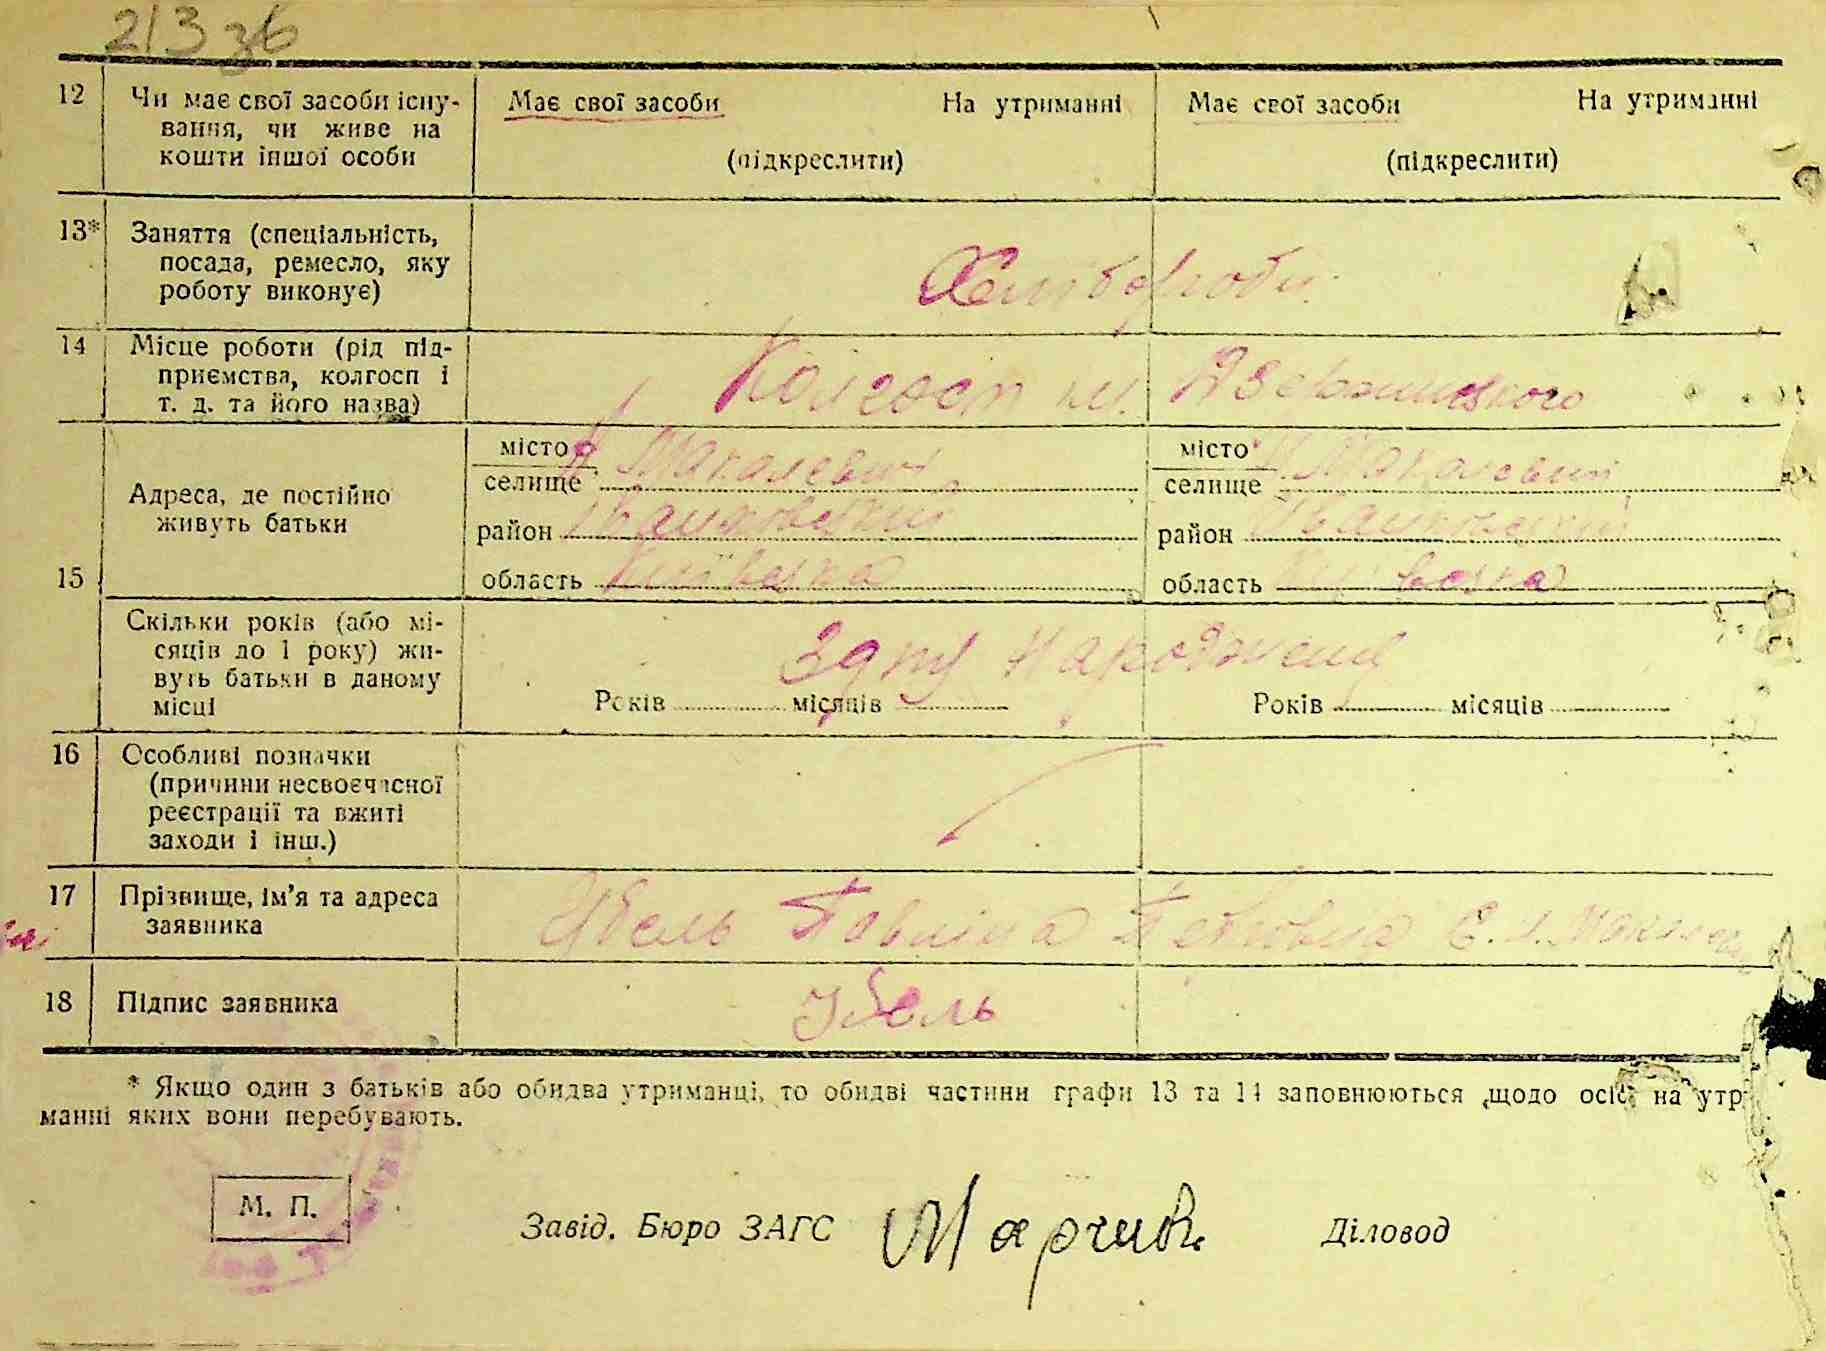 213 зб
12 Чи має свої засоби існу- Має свої засоби На утриманні Має свої засоби На утриманні
вання, чи живе на
кошти іншої особи (підкреслити) (підкреслити)
13* Заняття (спеціальність,
посада, ремесло, яку Хлібороби
роботу виконує)
14 Місце роботи (рід під-
приємства, колгосп і Колгосп ім. Дзержинського
т. д. та його назва)
місто с. Макалевичі місто с. Макалевичі
Адреса, де постійно селище селище
живуть батьки район Іванковский район Іванковский
15 область Київська область Київська
Скільки років (або мі-
сяців до 1 року) жи- З дня народження
вуть батьки в даному
місці Років місяців Років місяців
16 Особливі позначки
(причини несвоєчасної
реєстрації та вжиті
заходи і інш.)
17 Прізвище, ім'я та адреса Цбель Павліна Петровна С.
заявника
18 Підпис заявника Цбель
* Якщо один з батьків або обидва утриманці, то обидві частини графи 13 та 14 заповнюються щодо осіб, на утр
манні яких вони перебувають.
М. П. Завід. Бюро ЗАГС Діловод